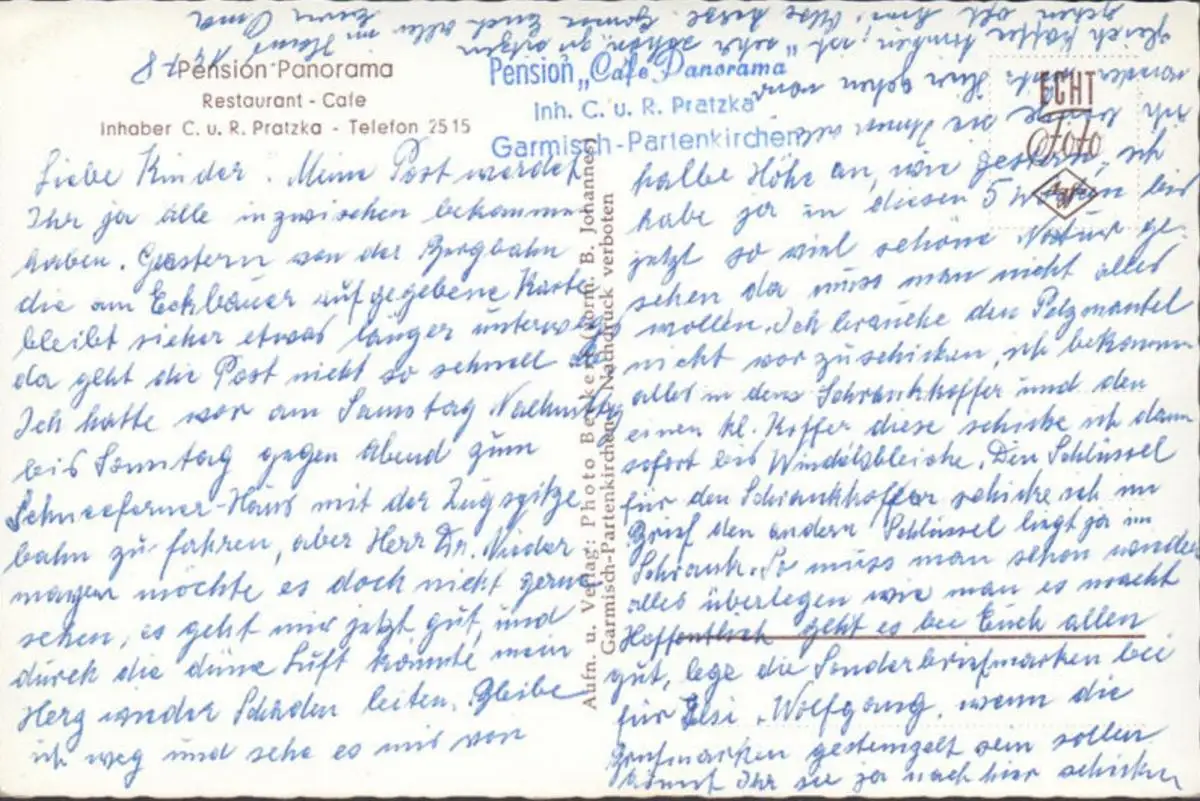 Pension Panorama
Restaurant - Cafe
Inhaber C. u. R. Pratzka - Telefon 2515
Pension „Cafe Panorama"
Inh. C. u. R. Pratzka
Garmisch-Partenkirchen
ECHT
Foto
Aufn. u. Verlag: Photo Becker (vorm. B. Johannes)
Garmisch-Partenkirchen Nachdruck verboten
Liebe Kinder. Meine Post werdet
Ihr ja alle inzwischen bekommen
haben. Gestern von der Bergbahn
die am Eckbauer aufgegebene Karte
bleibt sicher etwas länger unterwegs
da geht die Post nicht so schnell
Ich hatte vor am Samstag Nachmittag
bis Sonntag gegen Abend zum
Schneeferner-Haus mit der Zugspitze
bahn zu fahren, aber Herr Dr. Nieder
mayer möchte es doch nicht gerne
sehen, es geht mir jetzt gut, und
durch die düne Luft könnte mein
Herz wieder Schaden leiten. Bleibe
ich weg und sehe es mir von
halbe Höhe an, wie gestern, ich
habe ja in diesen 5 bis
jetzt so viel schöne Natur ge-
sehen da muss man nicht alles
wollen. Ich brauche den Pelzmantel
nicht vorzuschicken, ich bekomme
alles in dem Schrankkoffer und den
einen kl. Koffer diese schicke ich dann
sofort bis Windelsbleiche. Den Schlüssel
für den Schrankkoffer schicke ich im
Brief den andern Schlüssel liegt ja im
Schrank. So muss man schon wieder
alles überlegen wie man es macht
Hoffentlich geht es bei Euch allen
gut, lege die Sonderbriefmarken bei
für Elsi, Wolfgang, wenn die
Briefmarken gestempelt sein sollen
könnt Ihr sie ja nach hier schicken
ich
wieder Hier schon
gleich Kaffee trinken, ist „sehr schön" zu sitzen
gehen oft Alle Euch allen
Eure Oma